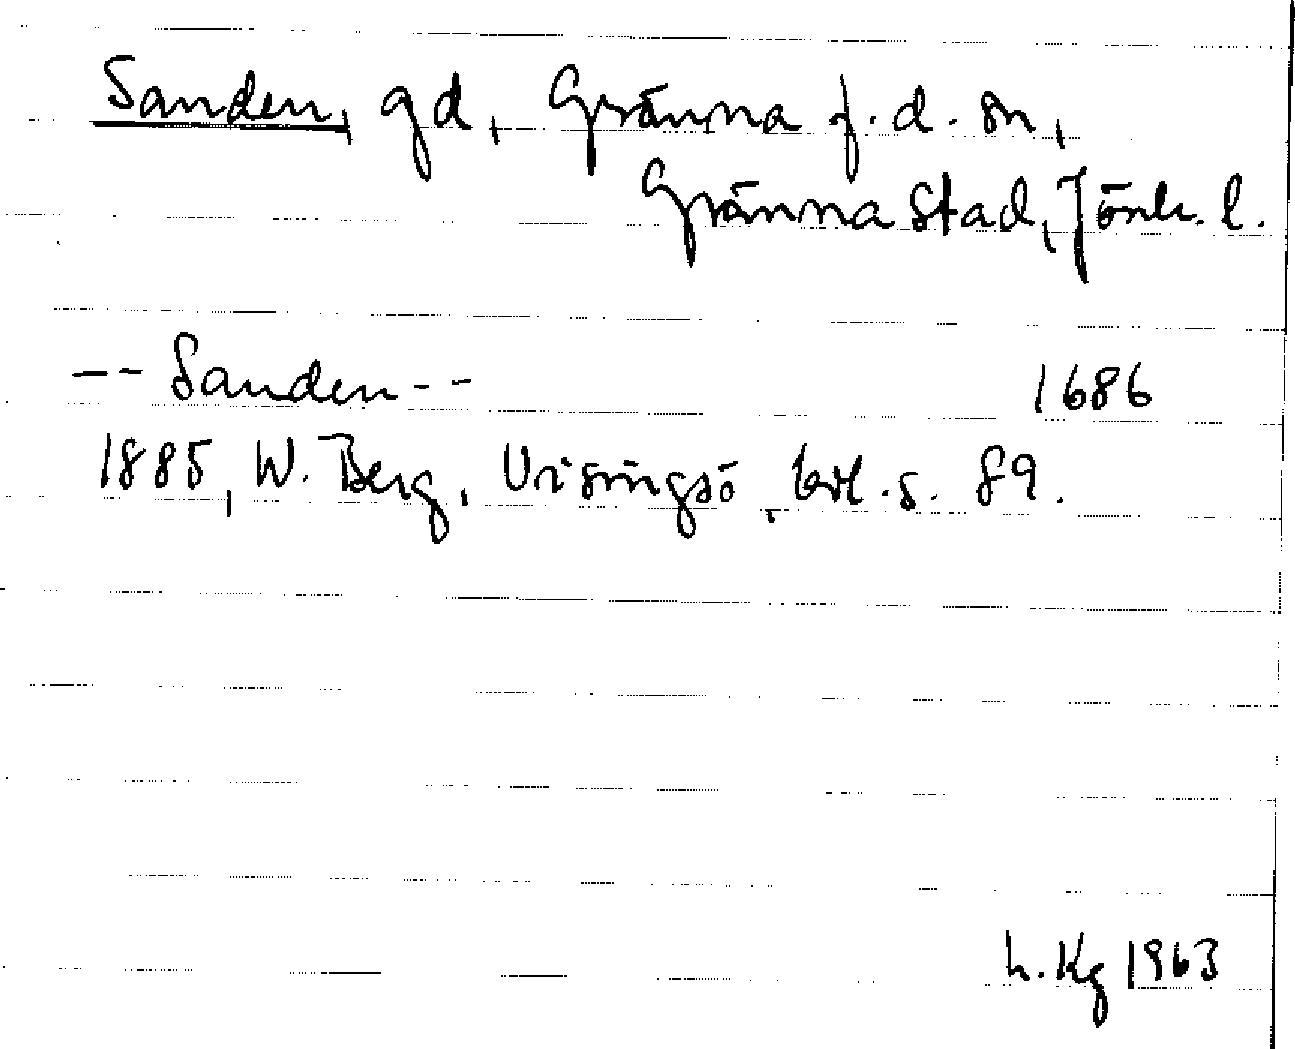 Sanden, gd, Gränna f.d. sn,
Gränna stad, Jönk. l.
-- Sanden -- 1686
1885, W. Berg, Visingsö, bil. s. 89.
h. Kg 1963